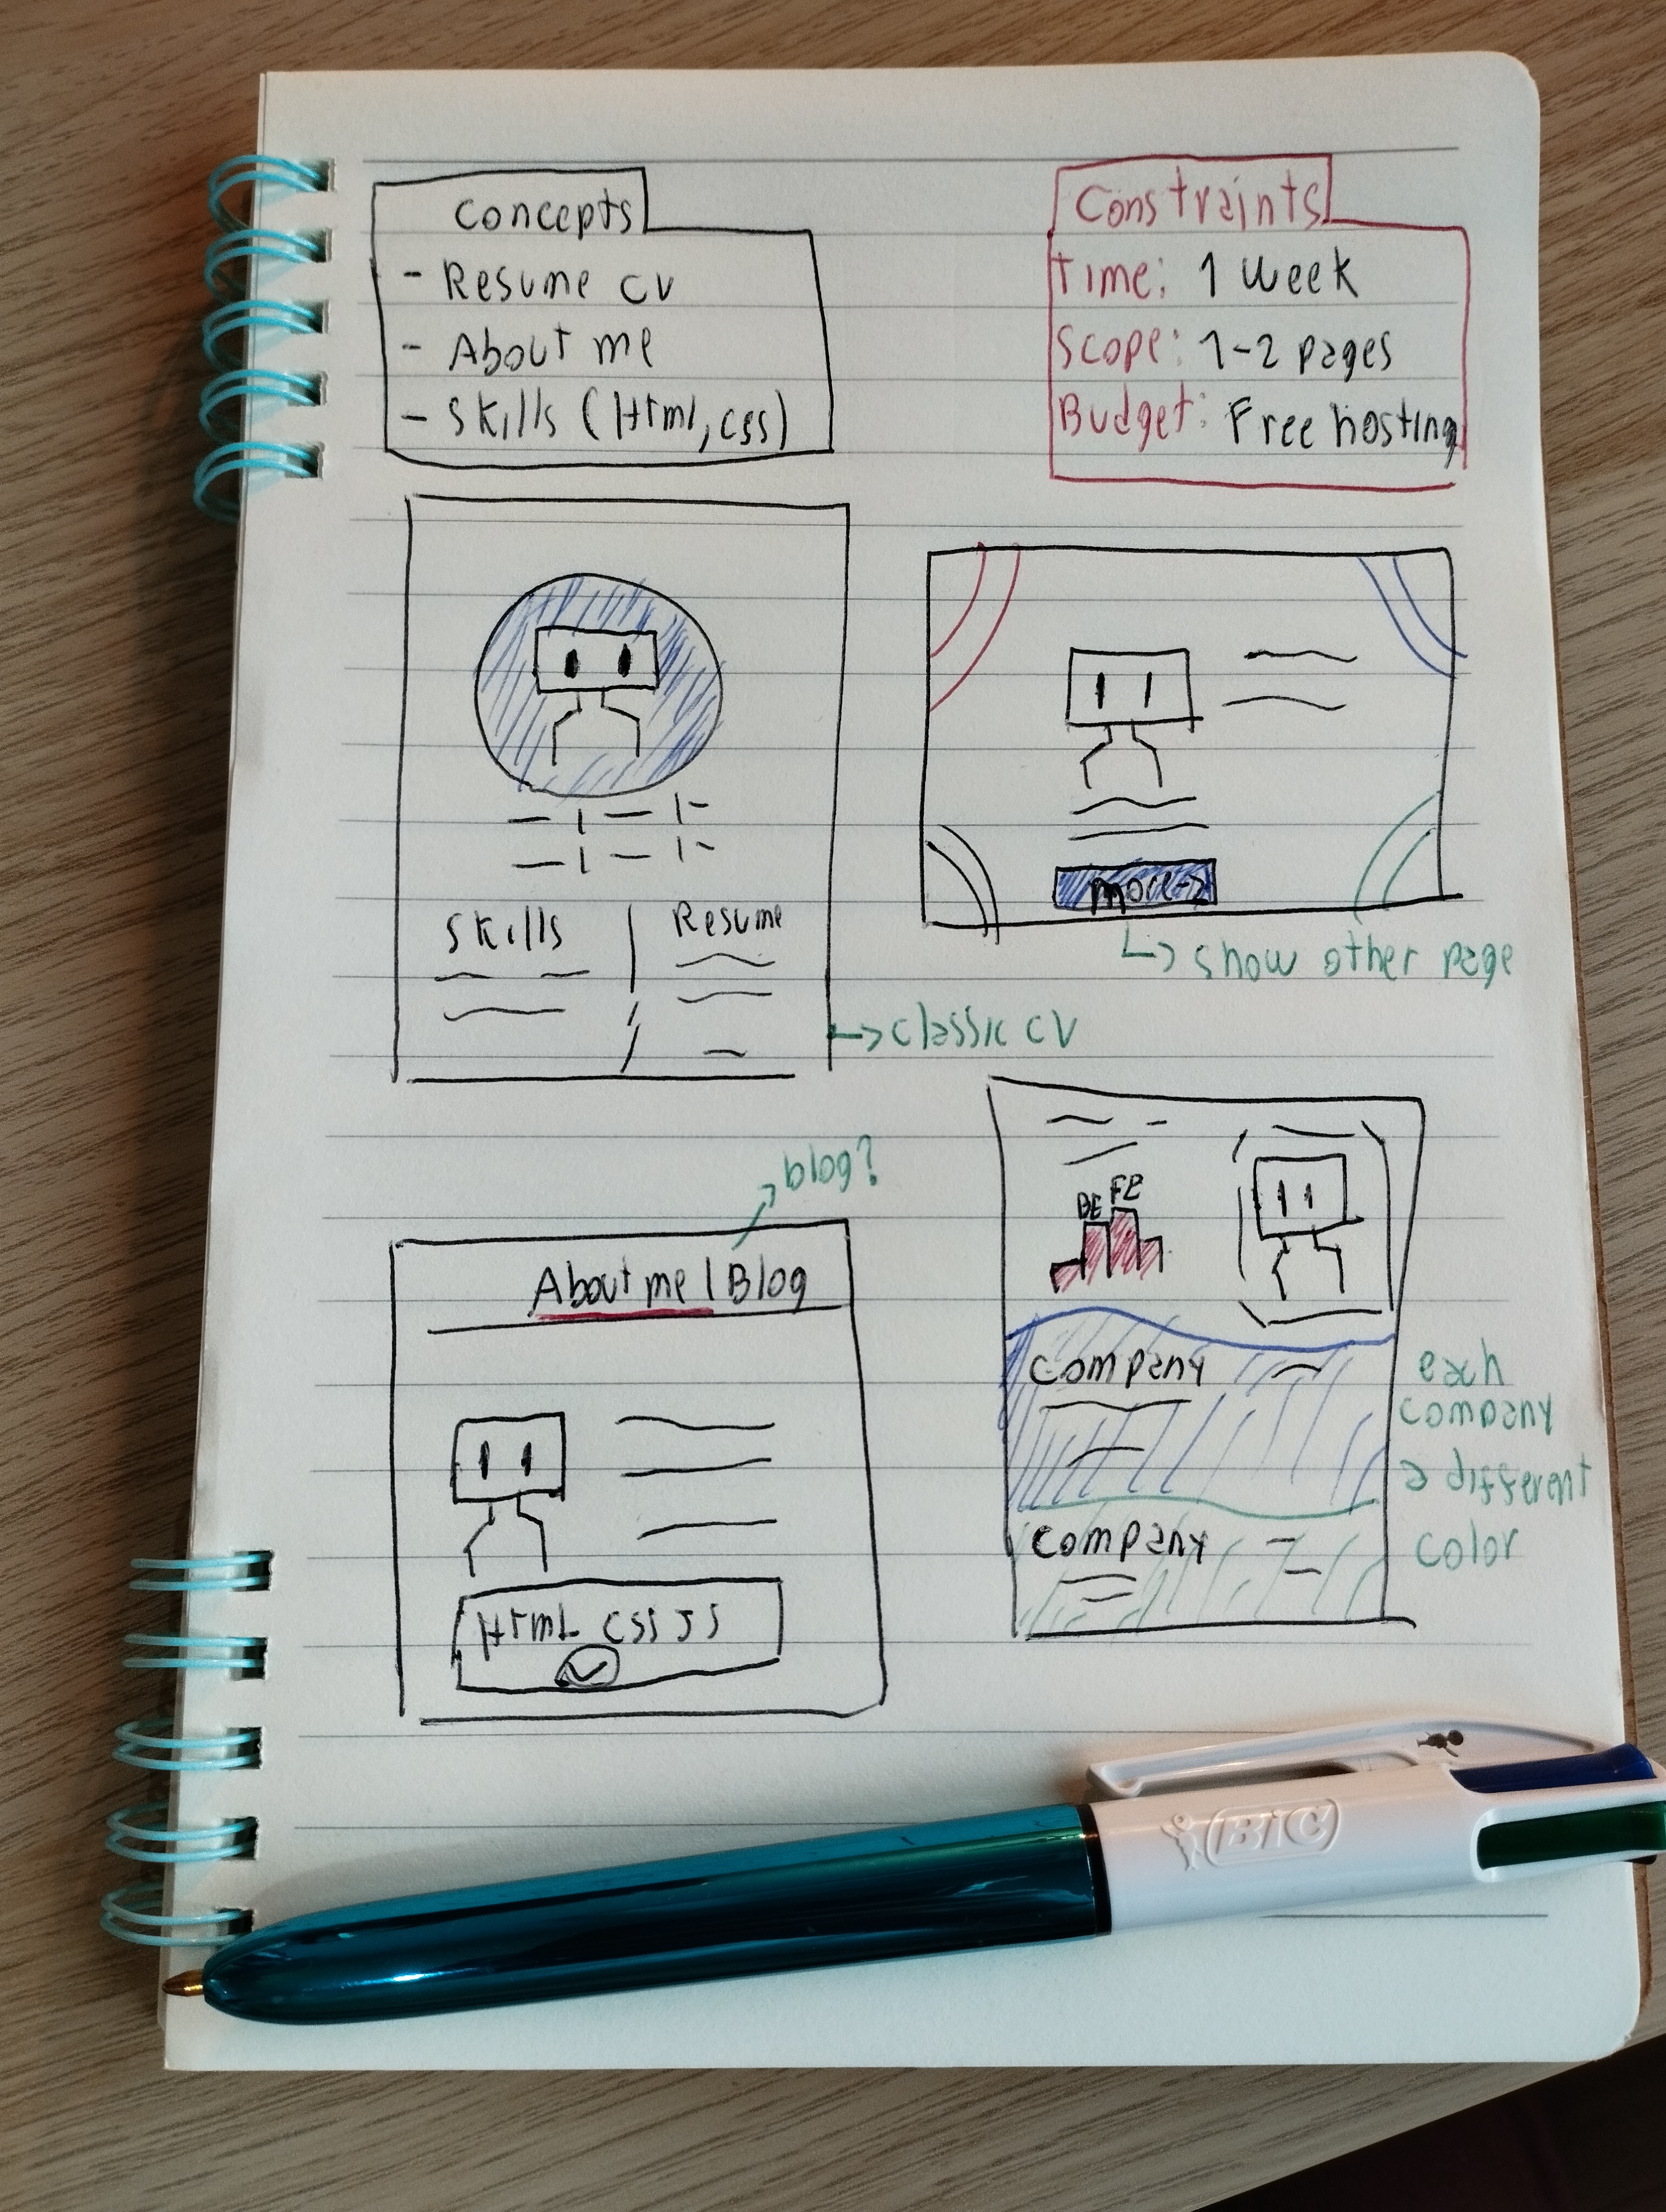 Concepts
- Resume CV
- About me
- Skills (Html, css)
Constraints
Time: 1 week
Scope: 1-2 pages
Budget: Free hosting
Skills | Resume
→ classic CV
more
↳ show other page
blog?
About me | Blog
Html CSS JS
BE FE
Company
Company
each
company
a different
color
BIC